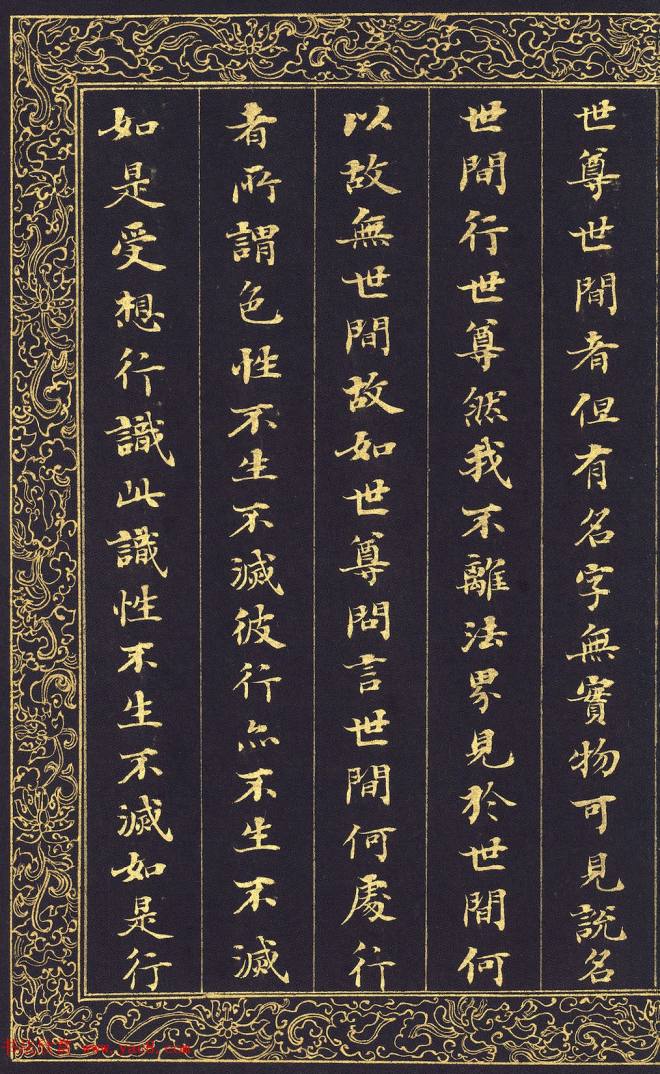 世尊世間者但有名字無實物可見説名
世間行世尊然我不離法界見於世間何
以故無世間故如世尊問言世間何處行
者所謂色性不生不滅彼行亦不生不滅
如是受想行識此識性不生不滅如是行